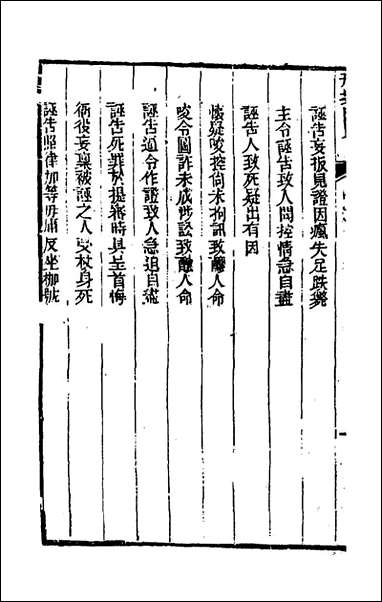 誣告妄扳見證因瘋失足跌斃
主令誣告致人問控情急自盡
誣告人致死疑出有因
懷疑唆控尚未拘訊致釀人命
唆令圖詐未成涉訟致釀人命
誣告逼令作證致人急迫自盡
誣告死罪於提審時具呈首悔
衙役妄稟被誣之人受杖身死
誣告照律加等毋庸反坐枷號